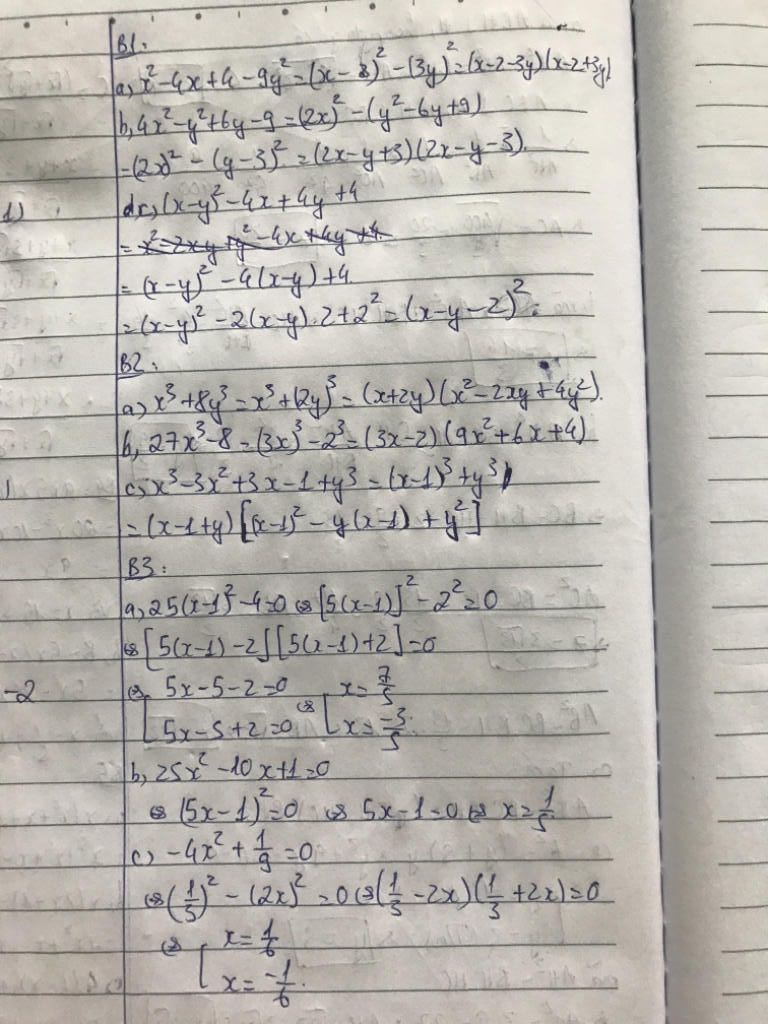 B1:
a, x² - 4x + 4 - 9y² = (x - 2)² - (3y)² = (x-2-3y)(x-2+3y)
b, 4x² - y² + 6y - 9 = (2x)² - (y² - 6y + 9)
1)
= (2x)² - (y-3)² = (2x-y+3)(2x-y-3).
c, (x-y)² - 4x + 4y + 4
= x² - 2xy + y² - 4x + 4y + 4.
= (x-y)² - 4(x-y) + 4.
= (x-y)² - 2(x-y).2 + 2² = (x-y-2)².
B2:
a, x³ + 8y³ = x³ + (2y)³ = (x+2y)(x² - 2xy + 4y²).
b, 27x³ - 8 = (3x)³ - 2³ = (3x-2)(9x² + 6x + 4)
c, x³ - 3x² + 3x - 1 + y³ = (x-1)³ + y³
= (x-1+y)[(x-1)² - y(x-1) + y²]
B3:
a, 25(x-1)² - 4 = 0 ⇔ [5(x-1)]² - 2² = 0
⇔ [5(x-1) - 2][5(x-1) + 2] = 0
-2
⇔ [ 5x - 5 - 2 = 0 ⇔ [ x = 7/5
5x - 5 + 2 = 0 x = -3/5.
b, 25x² - 10x + 1 = 0
⇔ (5x-1)² = 0 ⇔ 5x - 1 = 0 ⇔ x = 1/5
c) -4x² + 1/9 = 0
⇔ (1/3)² - (2x)² = 0 ⇔ (1/3 - 2x)(1/3 + 2x) = 0
⇔ [ x = 1/6
x = -1/6.